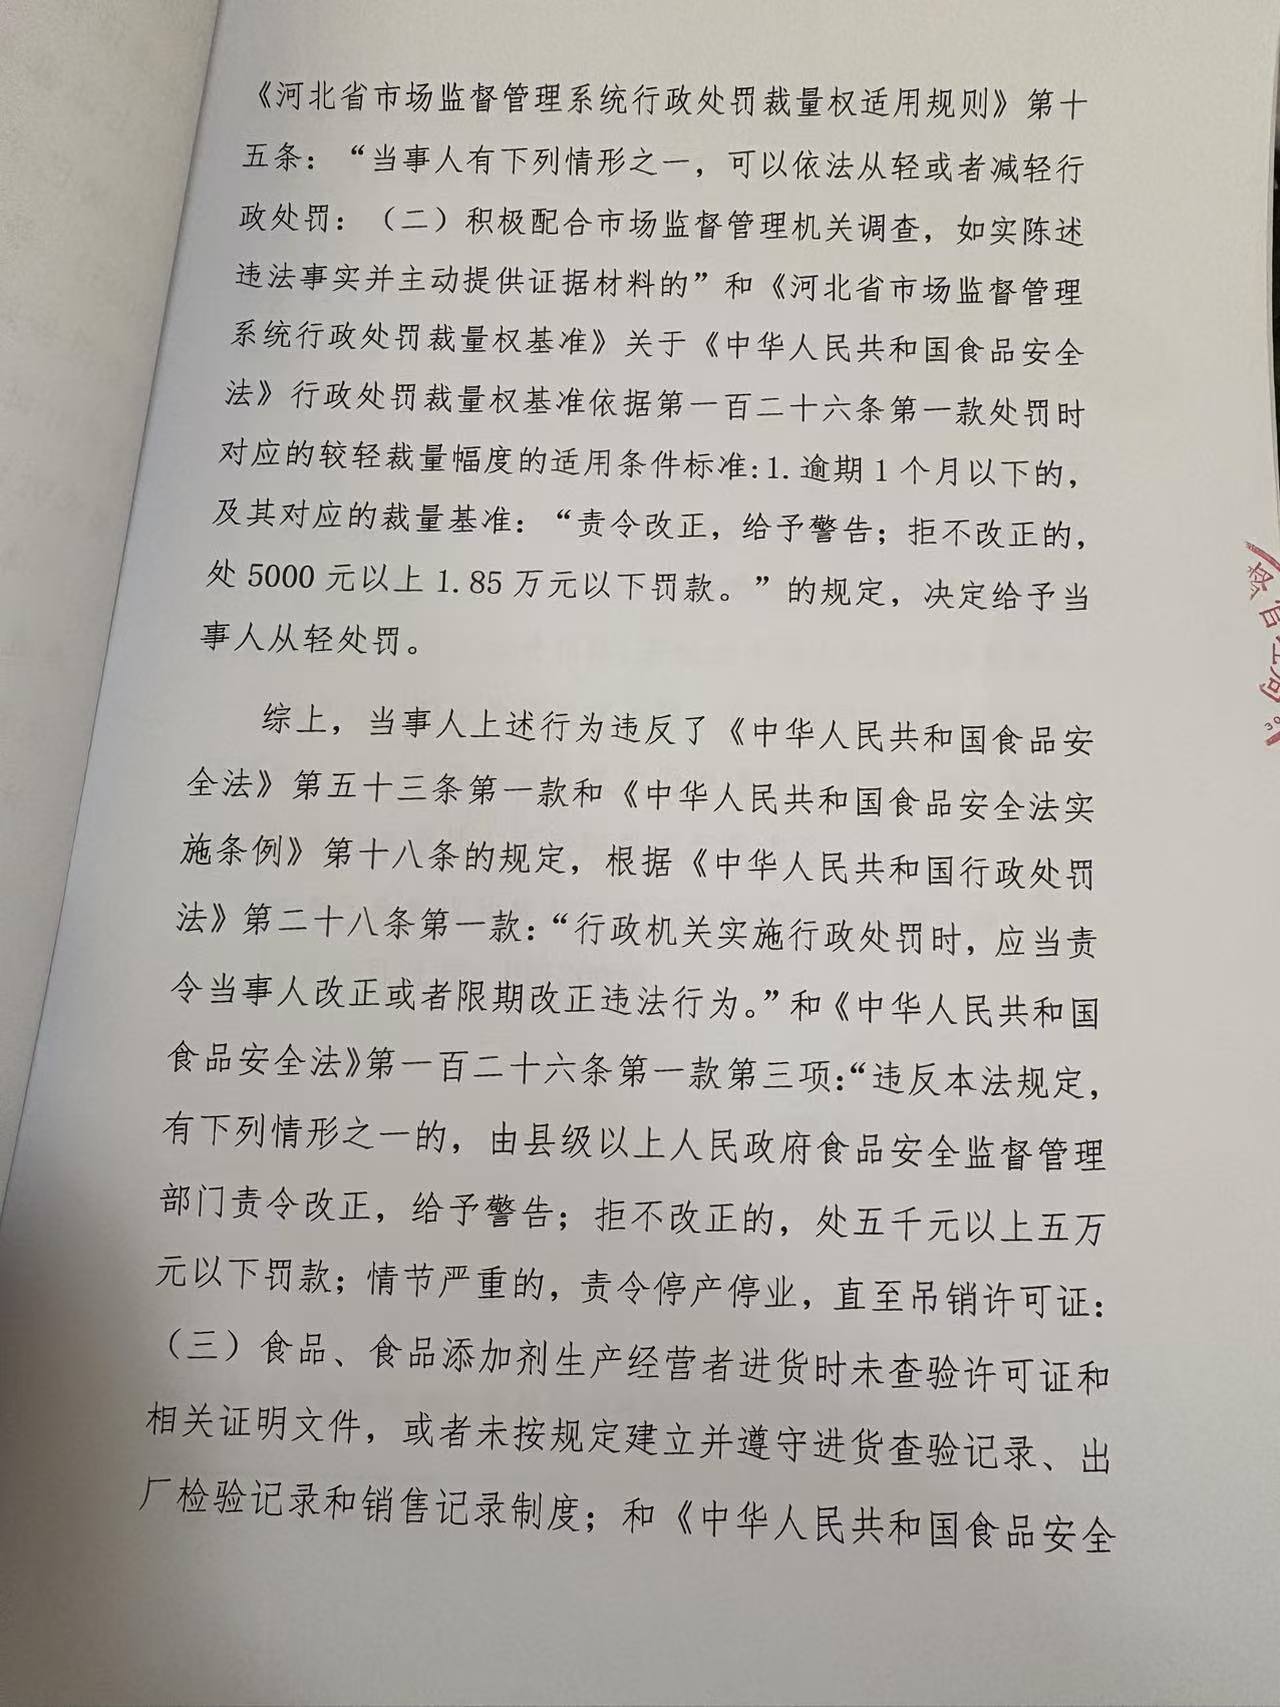 《河北省市场监督管理系统行政处罚裁量权适用规则》第十
五条：“当事人有下列情形之一，可以依法从轻或者减轻行
政处罚：（二）积极配合市场监督管理机关调查，如实陈述
违法事实并主动提供证据材料的”和《河北省市场监督管理
系统行政处罚裁量权基准》关于《中华人民共和国食品安全
法》行政处罚裁量权基准依据第一百二十六条第一款处罚时
对应的较轻裁量幅度的适用条件标准:1.逾期1个月以下的，
及其对应的裁量基准：“责令改正，给予警告；拒不改正的，
处5000元以上1.85万元以下罚款。”的规定，决定给予当
事人从轻处罚。
综上，当事人上述行为违反了《中华人民共和国食品安
全法》第五十三条第一款和《中华人民共和国食品安全法实
施条例》第十八条的规定，根据《中华人民共和国行政处罚
法》第二十八条第一款：“行政机关实施行政处罚时，应当责
令当事人改正或者限期改正违法行为。”和《中华人民共和国
食品安全法》第一百二十六条第一款第三项：“违反本法规定，
有下列情形之一的，由县级以上人民政府食品安全监督管理
部门责令改正，给予警告；拒不改正的，处五千元以上五万
元以下罚款；情节严重的，责令停产停业，直至吊销许可证：
（三）食品、食品添加剂生产经营者进货时未查验许可证和
相关证明文件，或者未按规定建立并遵守进货查验记录、出
厂检验记录和销售记录制度；和《中华人民共和国食品安全